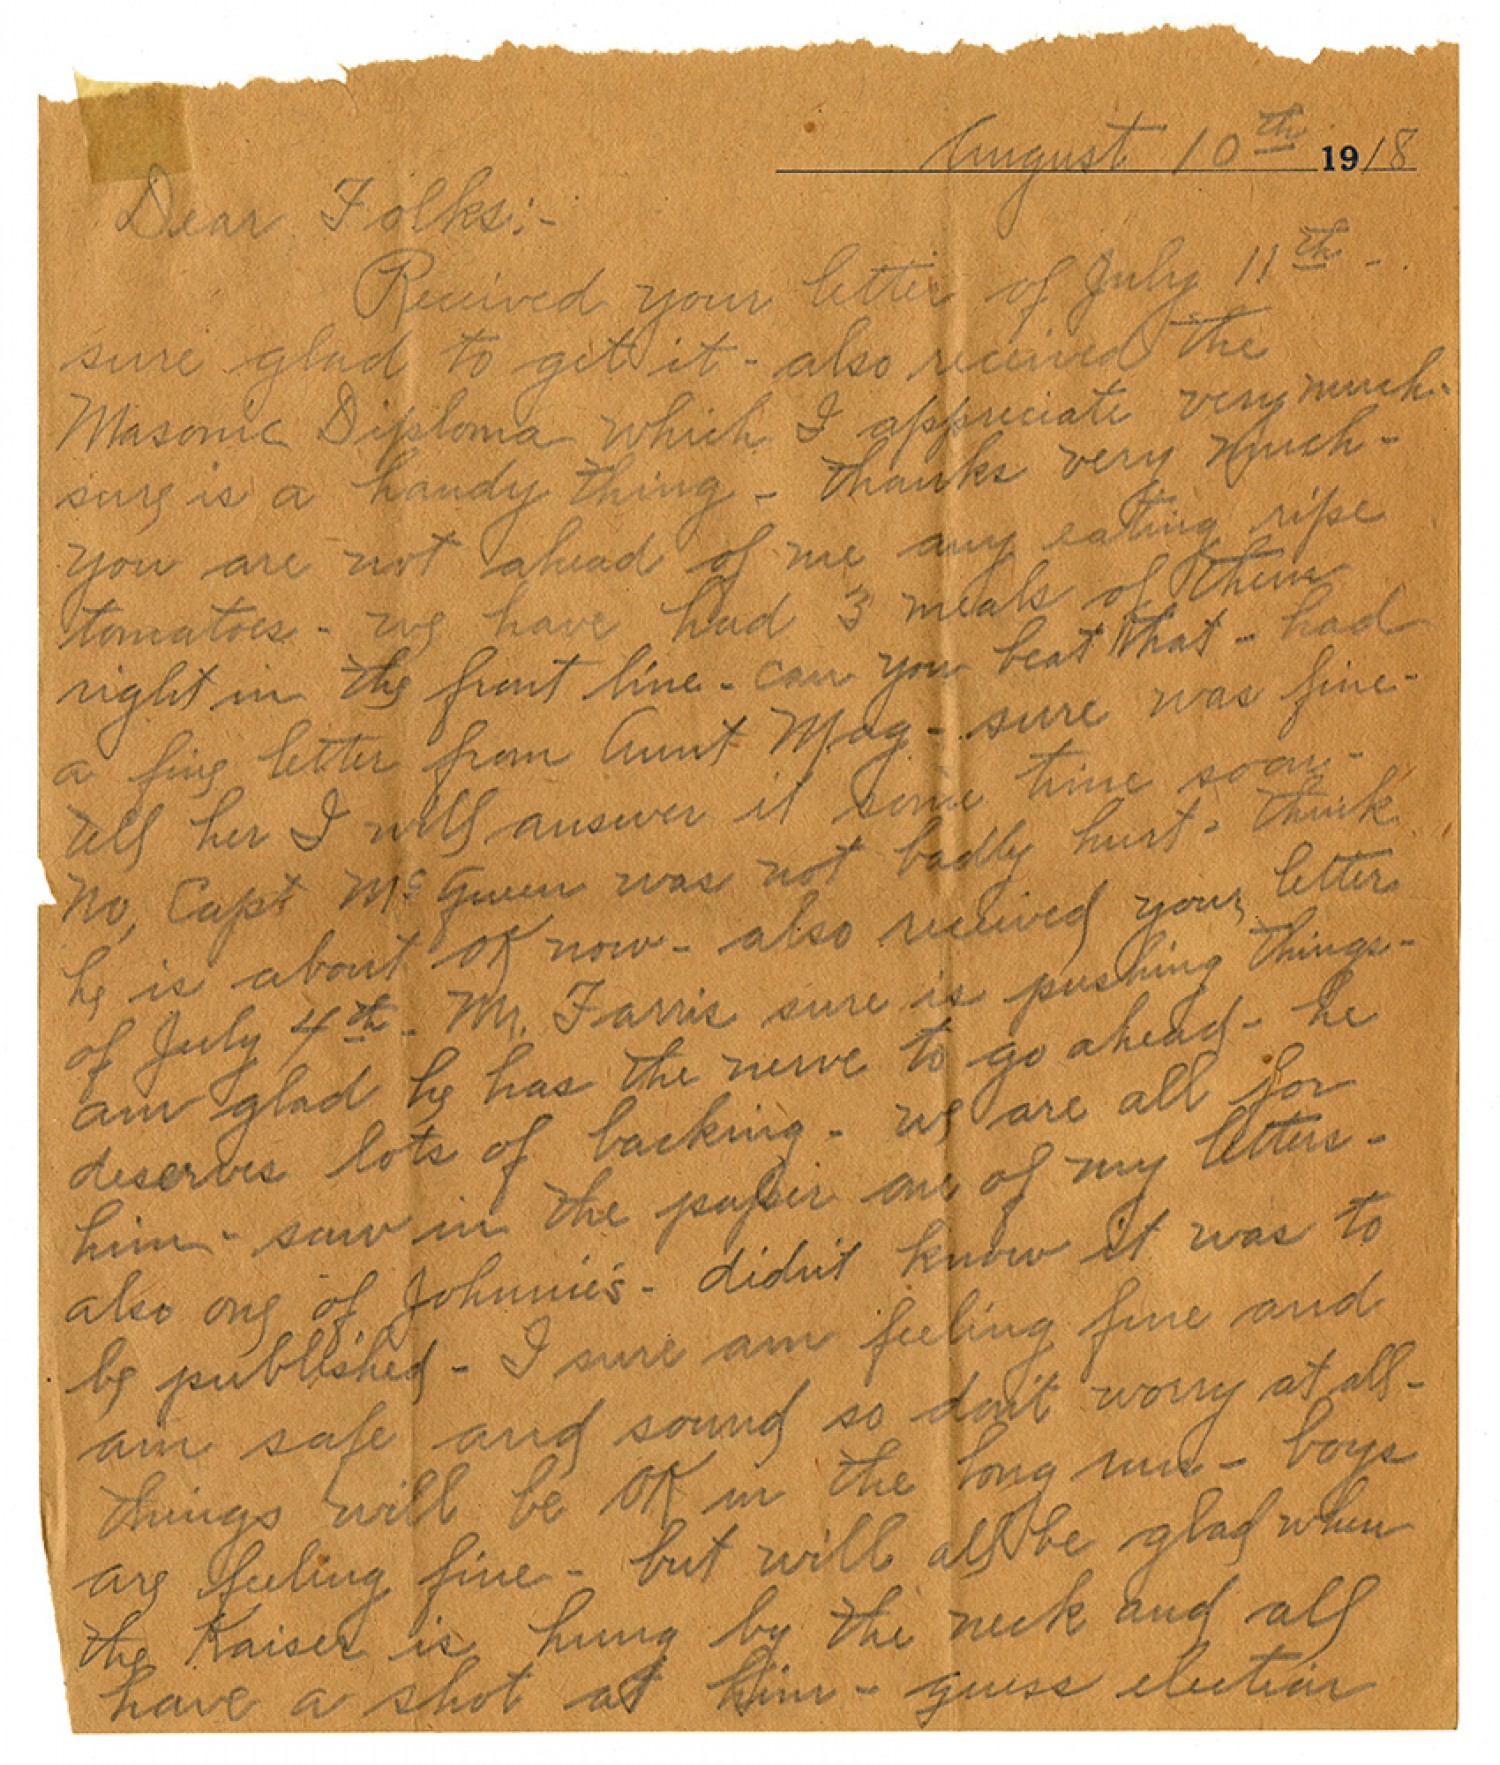 August 10th 1918
Dear Folks:-
Received your letter of July 11th -
sure glad to get it - also received the
Masonic Diploma which I appreciate very much -
sure is a handy thing - thanks very much -
you are not ahead of me any eating ripe
tomatoes - we have had 3 meals of them
right in the front line - can you beat that - had
a fine letter from Aunt Mag - sure was fine -
tell her I will answer it some time soon -
No, Capt McGuen was not badly hurt - think
he is about OK now - also received your letter
of July 4th - Mr. Farris sure is pushing things -
am glad he has the nerve to go ahead - he
deserves lots of backing - we are all for
him - saw in the paper one of my letters -
also one of Johnnie's - didn't know it was to
be published - I sure am feeling fine and
am safe and sound so don't worry at all -
things will be OK in the long run - boys
are feeling fine - but will all be glad when
the Kaiser is hung by the neck and all
have a shot at him - guess election